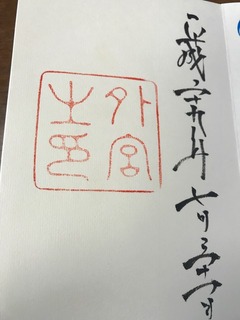 平成二十九年七月三十一日
外宮
之印